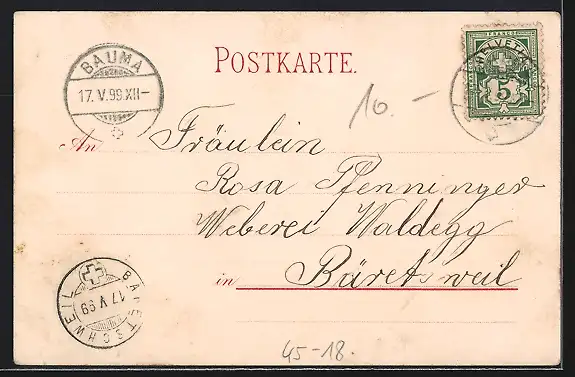 POSTKARTE.
BAUMA
17.V.99.XII-
FRANCO
HELVETIA
5
16.-
An Fräulein
Rosa Pfenninger
Weberei Waldegg
in Bäretsweil
BÄRETSCHWEIL
17 V 99
45-18.